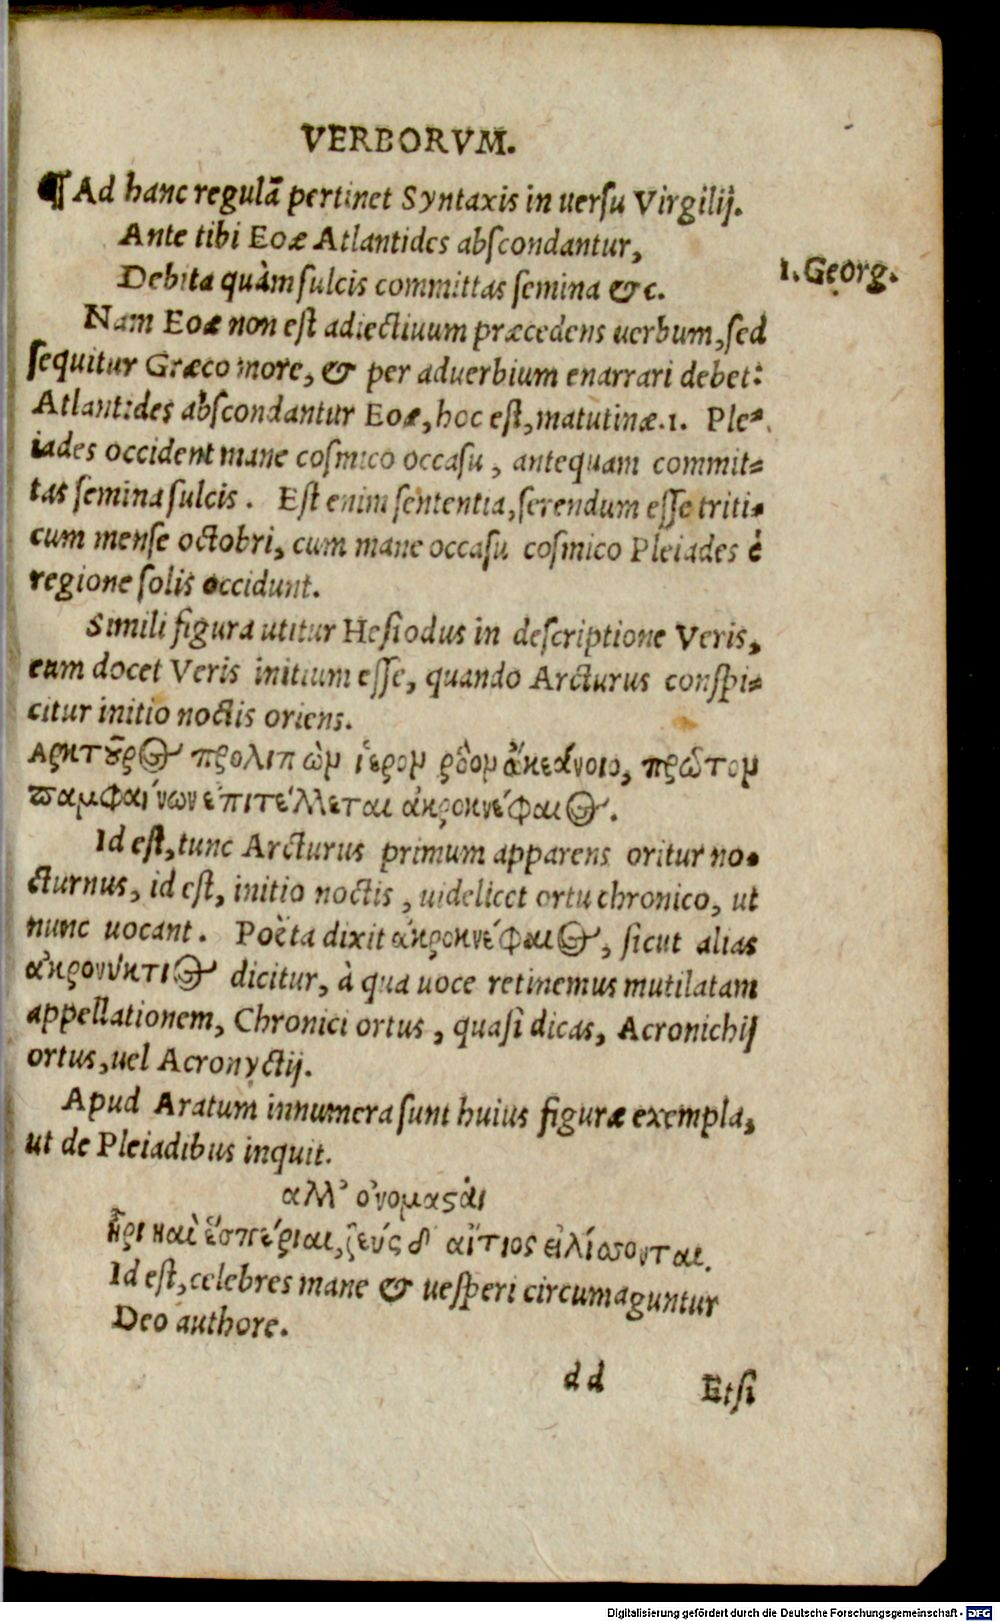 VERBORVM.
¶ Ad hanc regulā pertinet Syntaxis in uersu Virgilij.
Ante tibi Eoæ Atlantides abscondantur,
Debita quàm sulcis committas semina &c.
1. Georg.
Nam Eoæ non est adiectiuum præcedens uerbum, sed
sequitur Græco more, & per aduerbium enarrari debet:
Atlantides abscondantur Eoæ, hoc est, matutinæ.1. Ple-
iades occident mane cosmico occasu, antequam commit-
tas semina sulcis. Est enim sententia, serendum esse triti-
cum mense octobri, cum mane occasu cosmico Pleiades è
regione solis occidunt.
Simili figura utitur Hesiodus in descriptione Veris,
eum docet Veris initium esse, quando Arcturus conspi-
citur initio noctis oriens.
αρκτοῦρος προλιπὼν ἱερον ρόον ὠκεάνοιο, πρῶτον
παμφαίνων επιτέλλεται ακροκνέφαιος.
Id est, tunc Arcturus primum apparens oritur no-
cturnus, id est, initio noctis, uidelicet ortu chronico, ut
nunc uocant. Poëta dixit ακροκνέφαιος, sicut alias
ακρονύκτιος dicitur, à qua uoce retinemus mutilatam
appellationem, Chronici ortus, quasi dicas, Acronichij
ortus, uel Acronyctij.
Apud Aratum innumera sunt huius figuræ exempla,
ut de Pleiadibus inquit.
αλλ' ονομαςαὶ
ἦρι καὶ ἑσπέριαι, ζεύς δ' αἴτιος εἱλίσσονται.
Id est, celebres mane & uesperi circumaguntur
Deo authore.
dd
Etsi
Digitalisierung gefördert durch die Deutsche Forschungsgemeinschaft - DFG